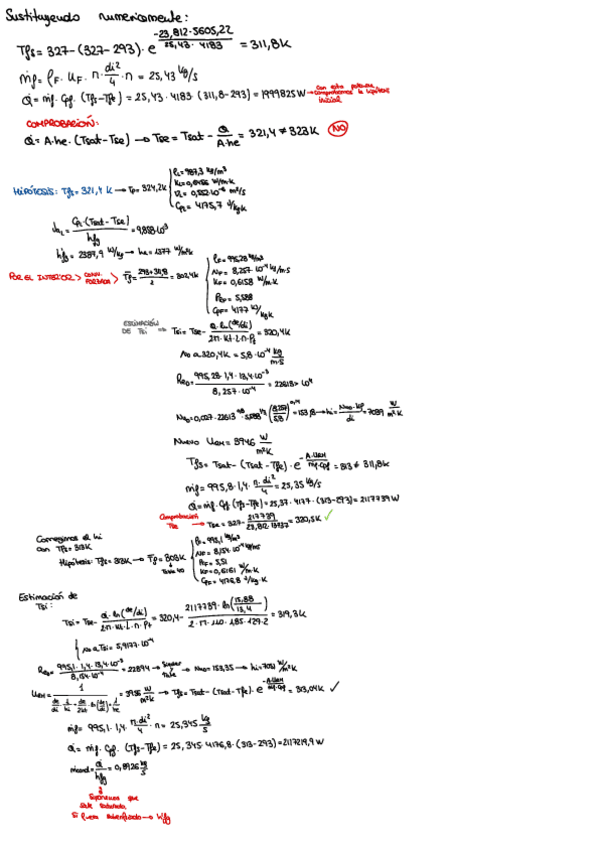 Sustituyendo numericamente:
Tfs = 327 - (327 - 293) · e^(-23,812 · 5605,22 / 25,43 · 4183) = 311,8K
ṁf = ρF · uF · π · di²/4 · n = 25,43 kg/s
Q̇ = ṁf · Cpf · (Tfs - Tfe) = 25,43 · 4183 · (311,8 - 293) = 1999825 W → con esta potencia comprobamos la hipótesis inicial
COMPROBACIÓN:
Q̇ = A · he · (Tsat - Tse) → Tse = Tsat - Q̇/A·he = 321,4 ≠ 323K NO
HIPÓTESIS: Tse = 321,4 K → Tp = 324,2K
ρL = 987,3 kg/m³
KL = 0,6455 W/m·K
νL = 0,552·10⁻⁶ m²/s
CpL = 4175,7 J/kg·K
JaL = CpL · (Tsat - Tse) / hfg = 9,858·10⁻³
h'fg = 2387,9 kJ/kg → he = 1377 W/m²K
POR EL INTERIOR > CONV. FORZADA > T̄f = 293 + 311,8 / 2 = 302,4K
ρF = 995,28 kg/m³
μF = 8,257·10⁻⁴ kg/m·s
KF = 0,6158 W/m·K
PrF = 5,588
CpF = 4177 J/kg·K
ESTIMACIÓN DE Tsi ⇒ Tsi = Tse - Q̇ · ln(de/di) / 2π · kt · L · n · Pt = 320,4K
μ a 320,4K = 5,8·10⁻⁴ kg/m·s
ReD = 995,28 · 1,4 · 13,4·10⁻³ / 8,257·10⁻⁴ = 22613 > 10⁴
NuD = 0,027 · 22613^0,8 · 5,588^1/3 (8,257/5,8)^0,14 = 153,8 → hi = NuD · KF / di = 7089 W/m²K
Nuevo UeH = 3946 W/m²K
Tfs = Tsat - (Tsat - Tfe) · e^(-A·UeH / ṁf·Cpf) = 313 ≠ 311,8K
ṁf = 995,8 · 1,4 · π · di²/4 = 25,35 kg/s
Q̇ = ṁf · Cpf (Tfs - Tfe) = 25,37 · 4177 · (313 - 293) = 2117739 W
Comprobación Tse → Tse = 327 - 2117739 / 23,812 · = 320,5K ✓
Corregimos el hi
con Tfs = 313K
Hipótesis: Tfs = 313K → T̄f = 303K
Tabla
ρF = 995,1 kg/m³
μF = 8,154·10⁻⁴ kg/m·s
PrF = 5,51
KF = 0,6161 W/m·K
CpF = 4176,8 J/kg·K
Estimación de
Tsi:
Tsi = Tse - Q̇ · ln(de/di) / 2π · kt · L · n · Pt = 320,4 - 2117739 · ln(15,88/13,4) / 2 · π · 110 · 1,85 · 129 · 2 = 319,3K
μ a Tsi = 5,9177·10⁻⁴
ReD = 995,1 · 1,4 · 13,4·10⁻³ / 8,154·10⁻⁴ = 22894 → → NuD = 153,35 → hi = 7051 W/m²K
UeH = 1 / (de/di · 1/hi + de/2kt · ln(de/di) + 1/he) = 3936 W/m²K → Tfs = Tsat - (Tsat - Tfe) · e^(-A·UeH / ṁf·Cpf) = 313,04K ✓
ṁf = 995,1 · 1,4 · π · di²/4 · n = 25,345 kg/s
Q̇ = ṁf · Cpf · (Tfs - Tfe) = 25,345 · 4176,8 · (313 - 293) = 2117219,9 W
ṁcond = Q̇/hfg = 0,8926 kg/s
Suponemos que
sale saturado.
Si fuera subenfriado → h'fg